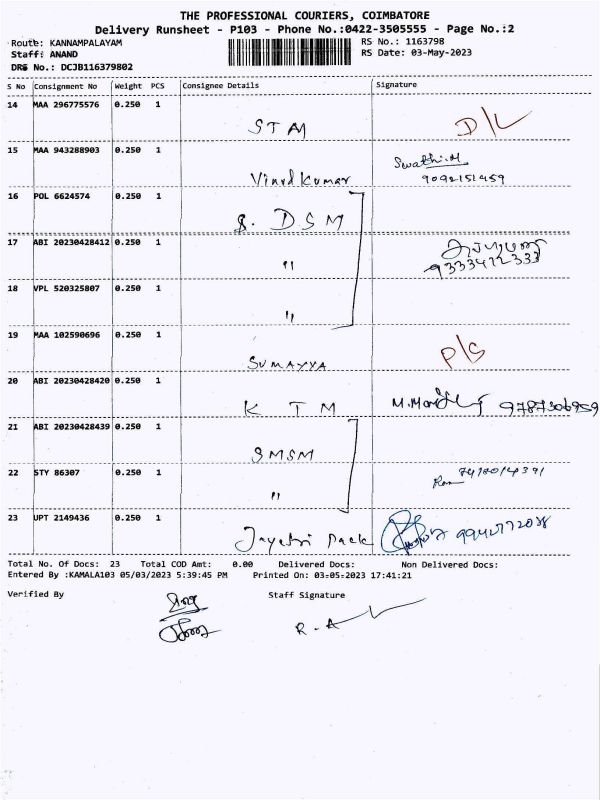 THE PROFESSIONAL COURIERS, COIMBATORE
Delivery Runsheet - P103 - Phone No.:0422-3505555 - Page No.:2
Route: KANNAMPALAYAM
RS No.: 1163798
Staff: ANAND
RS Date: 03-May-2023
DRS No.: DCJB116379802
S No Consignment No Weight PCS Consignee Details Signature
14 MAA 296775576 0.250 1
STM D/L
15 MAA 943288903 0.250 1
Swathi.M
Vinod Kumar 9092151459
16 POL 6624574 0.250 1
S. DSM
17 ABI 20230428412 0.250 1
" 9333472333
18 VPL 520325807 0.250 1
"
19 MAA 102590696 0.250 1
SUMAYYA P/S
20 ABI 20230428420 0.250 1
K T M 9787306959
21 ABI 20230428439 0.250 1
SMSM
22 STY 86307 0.250 1
"
23 UPT 2149436 0.250 1
Jayatri Pack
Total No. Of Docs: 23 Total COD Amt: 0.00 Delivered Docs: Non Delivered Docs:
Entered By :KAMALA103 05/03/2023 5:39:45 PM Printed On: 03-05-2023 17:41:21
Verified By Staff Signature
R. A